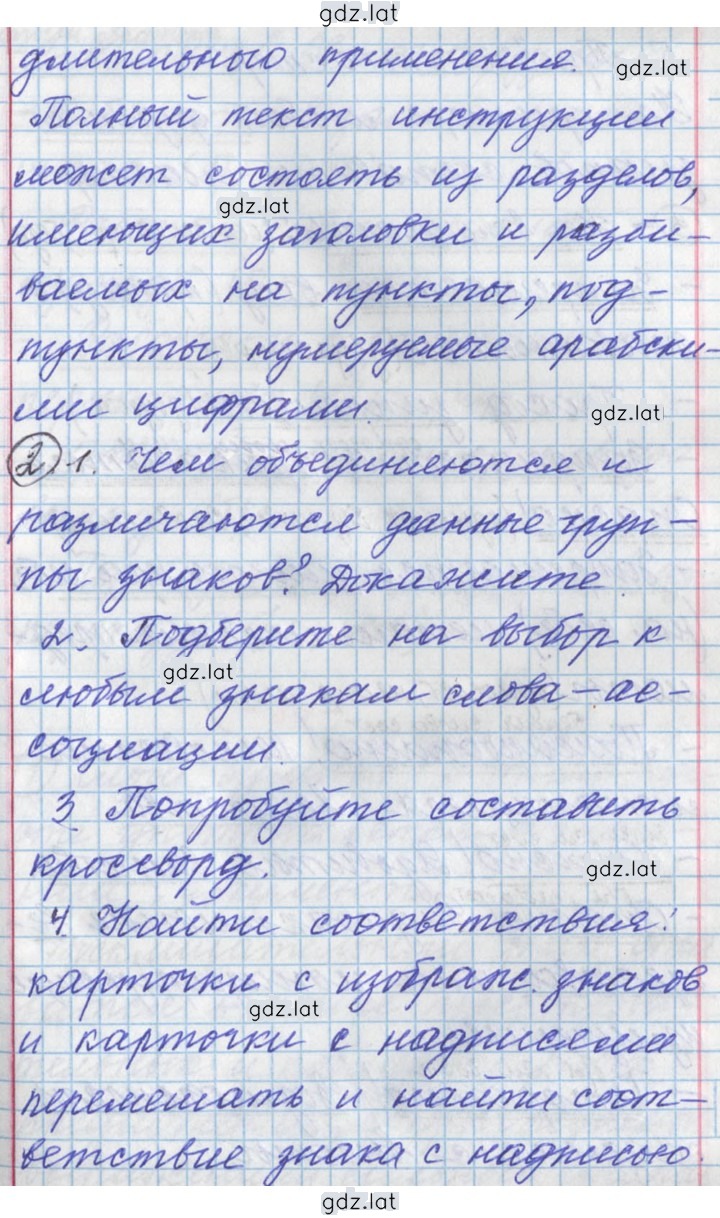 gdz.lat
длительного применения.
gdz.lat
Полный текст инструкции
может состоять из разделов,
gdz.lat
имеющих заголовки и разби-
ваемых на пункты, под-
пункты, нумеруемые арабски-
ми цифрами.
gdz.lat
2 1. Чем объединяются и
различаются данные груп-
пы знаков? Докажите
2. Подберите на выбор к
gdz.lat
любым знакам слова-ас-
социации.
3. Попробуйте составить
кроссворд.
gdz.lat
4. Найти соответствия:
карточки с изображ. знаков
gdz.lat
и карточки с надписями
перемешать и найти соот-
ветствие знака с надписью.
gdz.lat